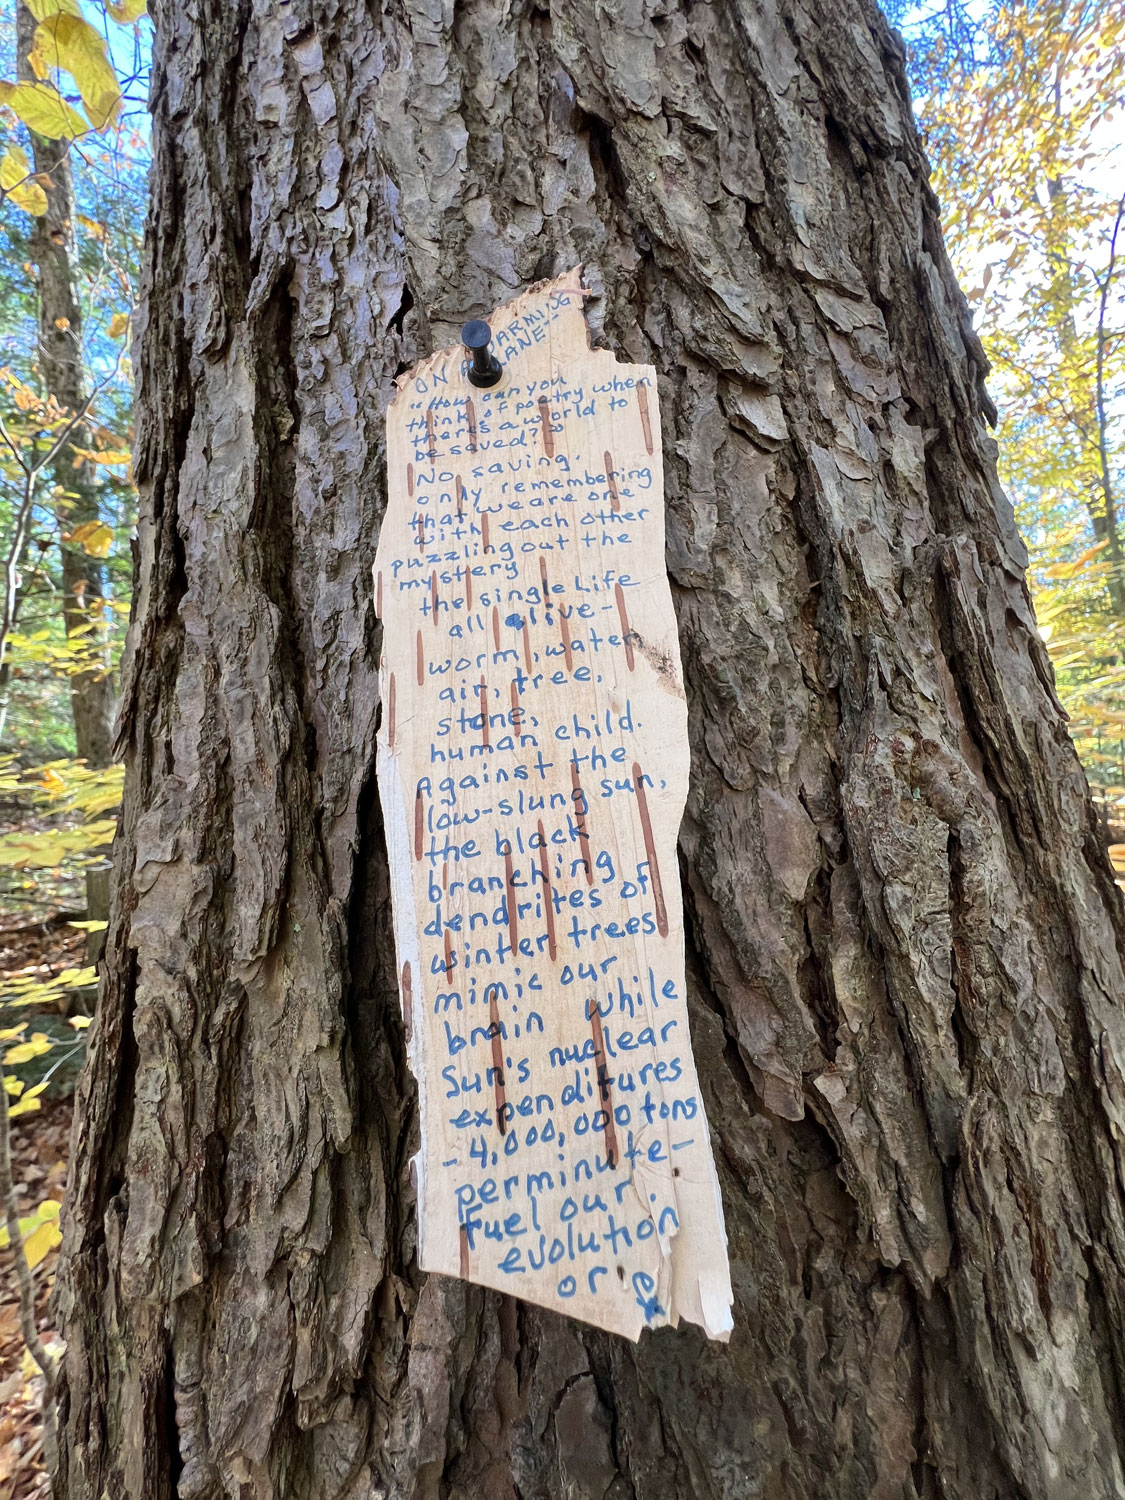 ON A WARMING
PLANET
"How can you
think of poetry when
there's a world to
be saved?"
No saving,
only remembering
that we are one
with each other
puzzling out the
mystery
the single Life
all alive-
worm, water
air, tree,
stone,
human child.
Against the
low-slung sun,
the black
branching
dendrites of
winter trees
mimic our
brain while
Sun's nuclear
expenditures
-4,000,000 tons
per minute-
fuel our
evolution.
or